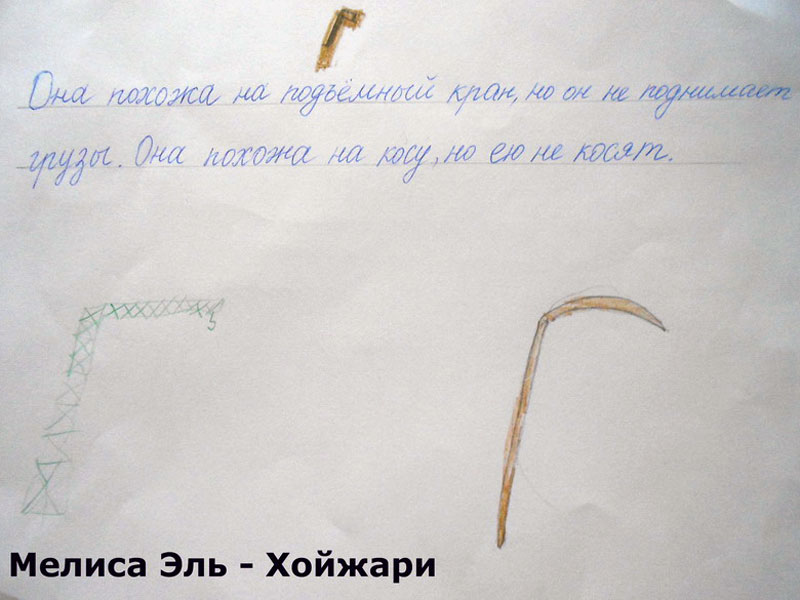 Г
Она похожа на подъёмный кран, но он не поднимает
грузы. Она похожа на косу, но ею не косят.
Мелиса Эль - Хойжари